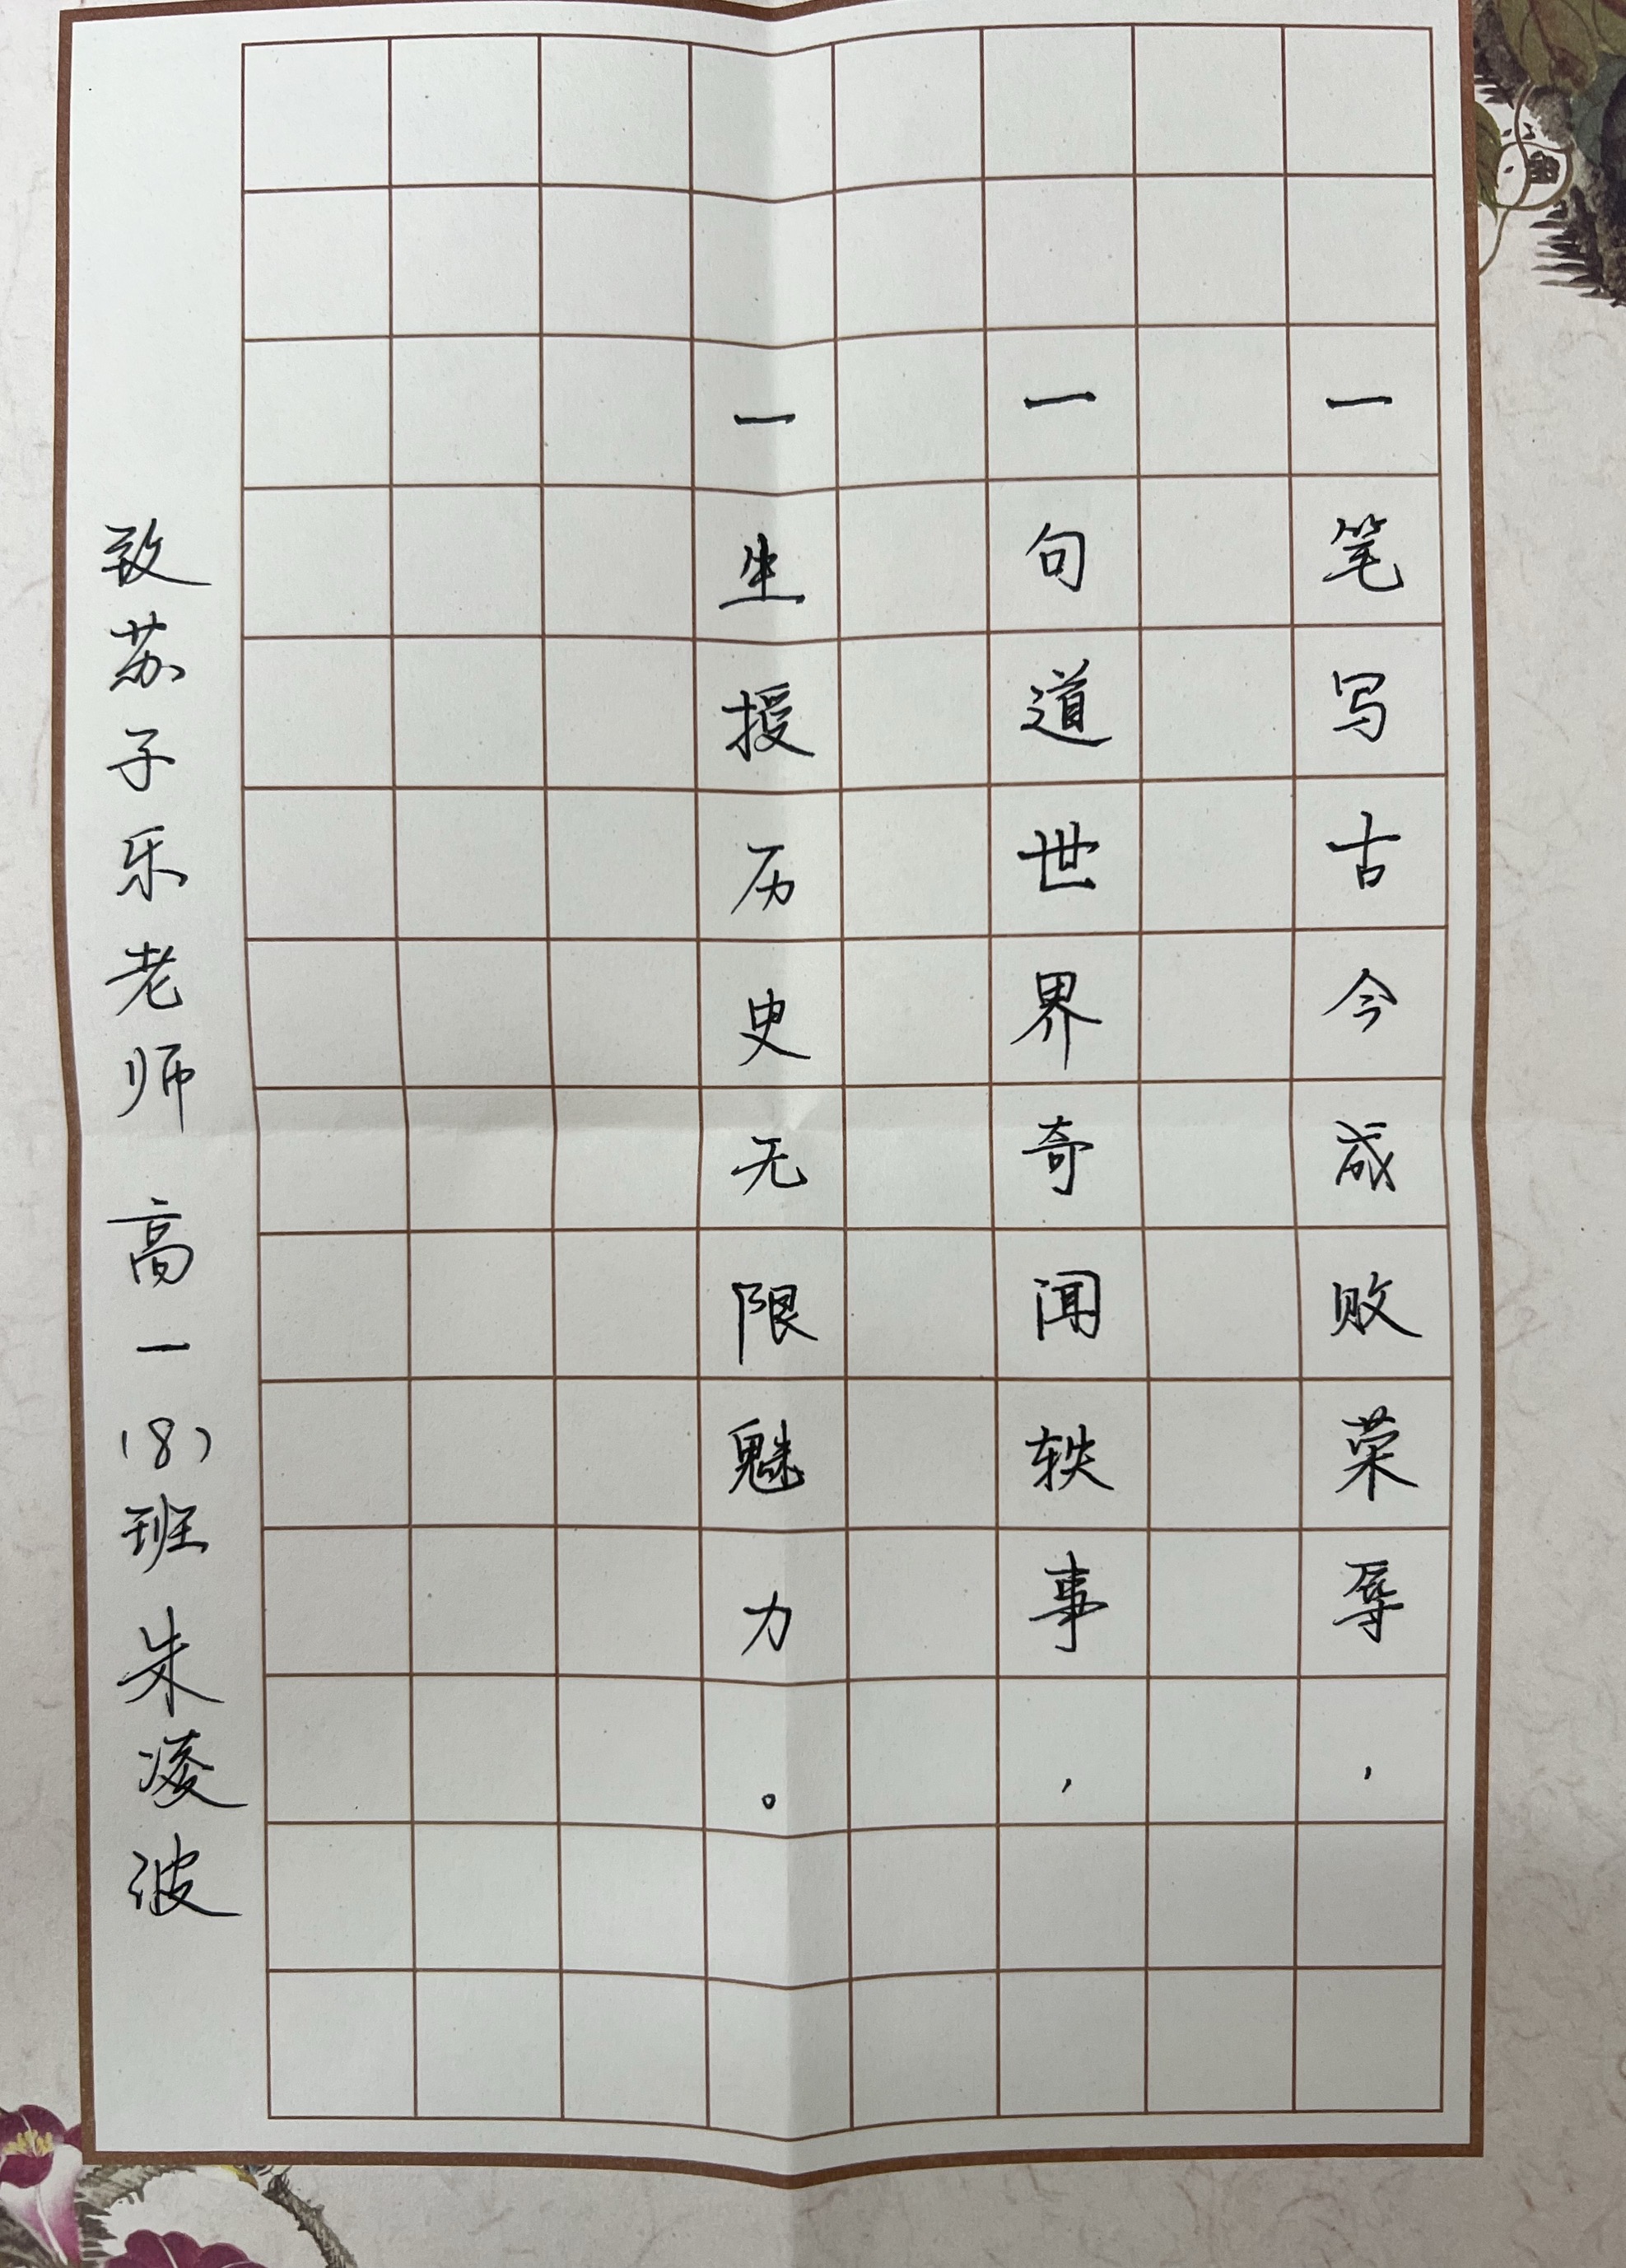 一笔写古今成败荣辱，
一句道世界奇闻轶事，
一生授历史无限魅力。
致苏子乐老师 高一(8)班 朱凌波